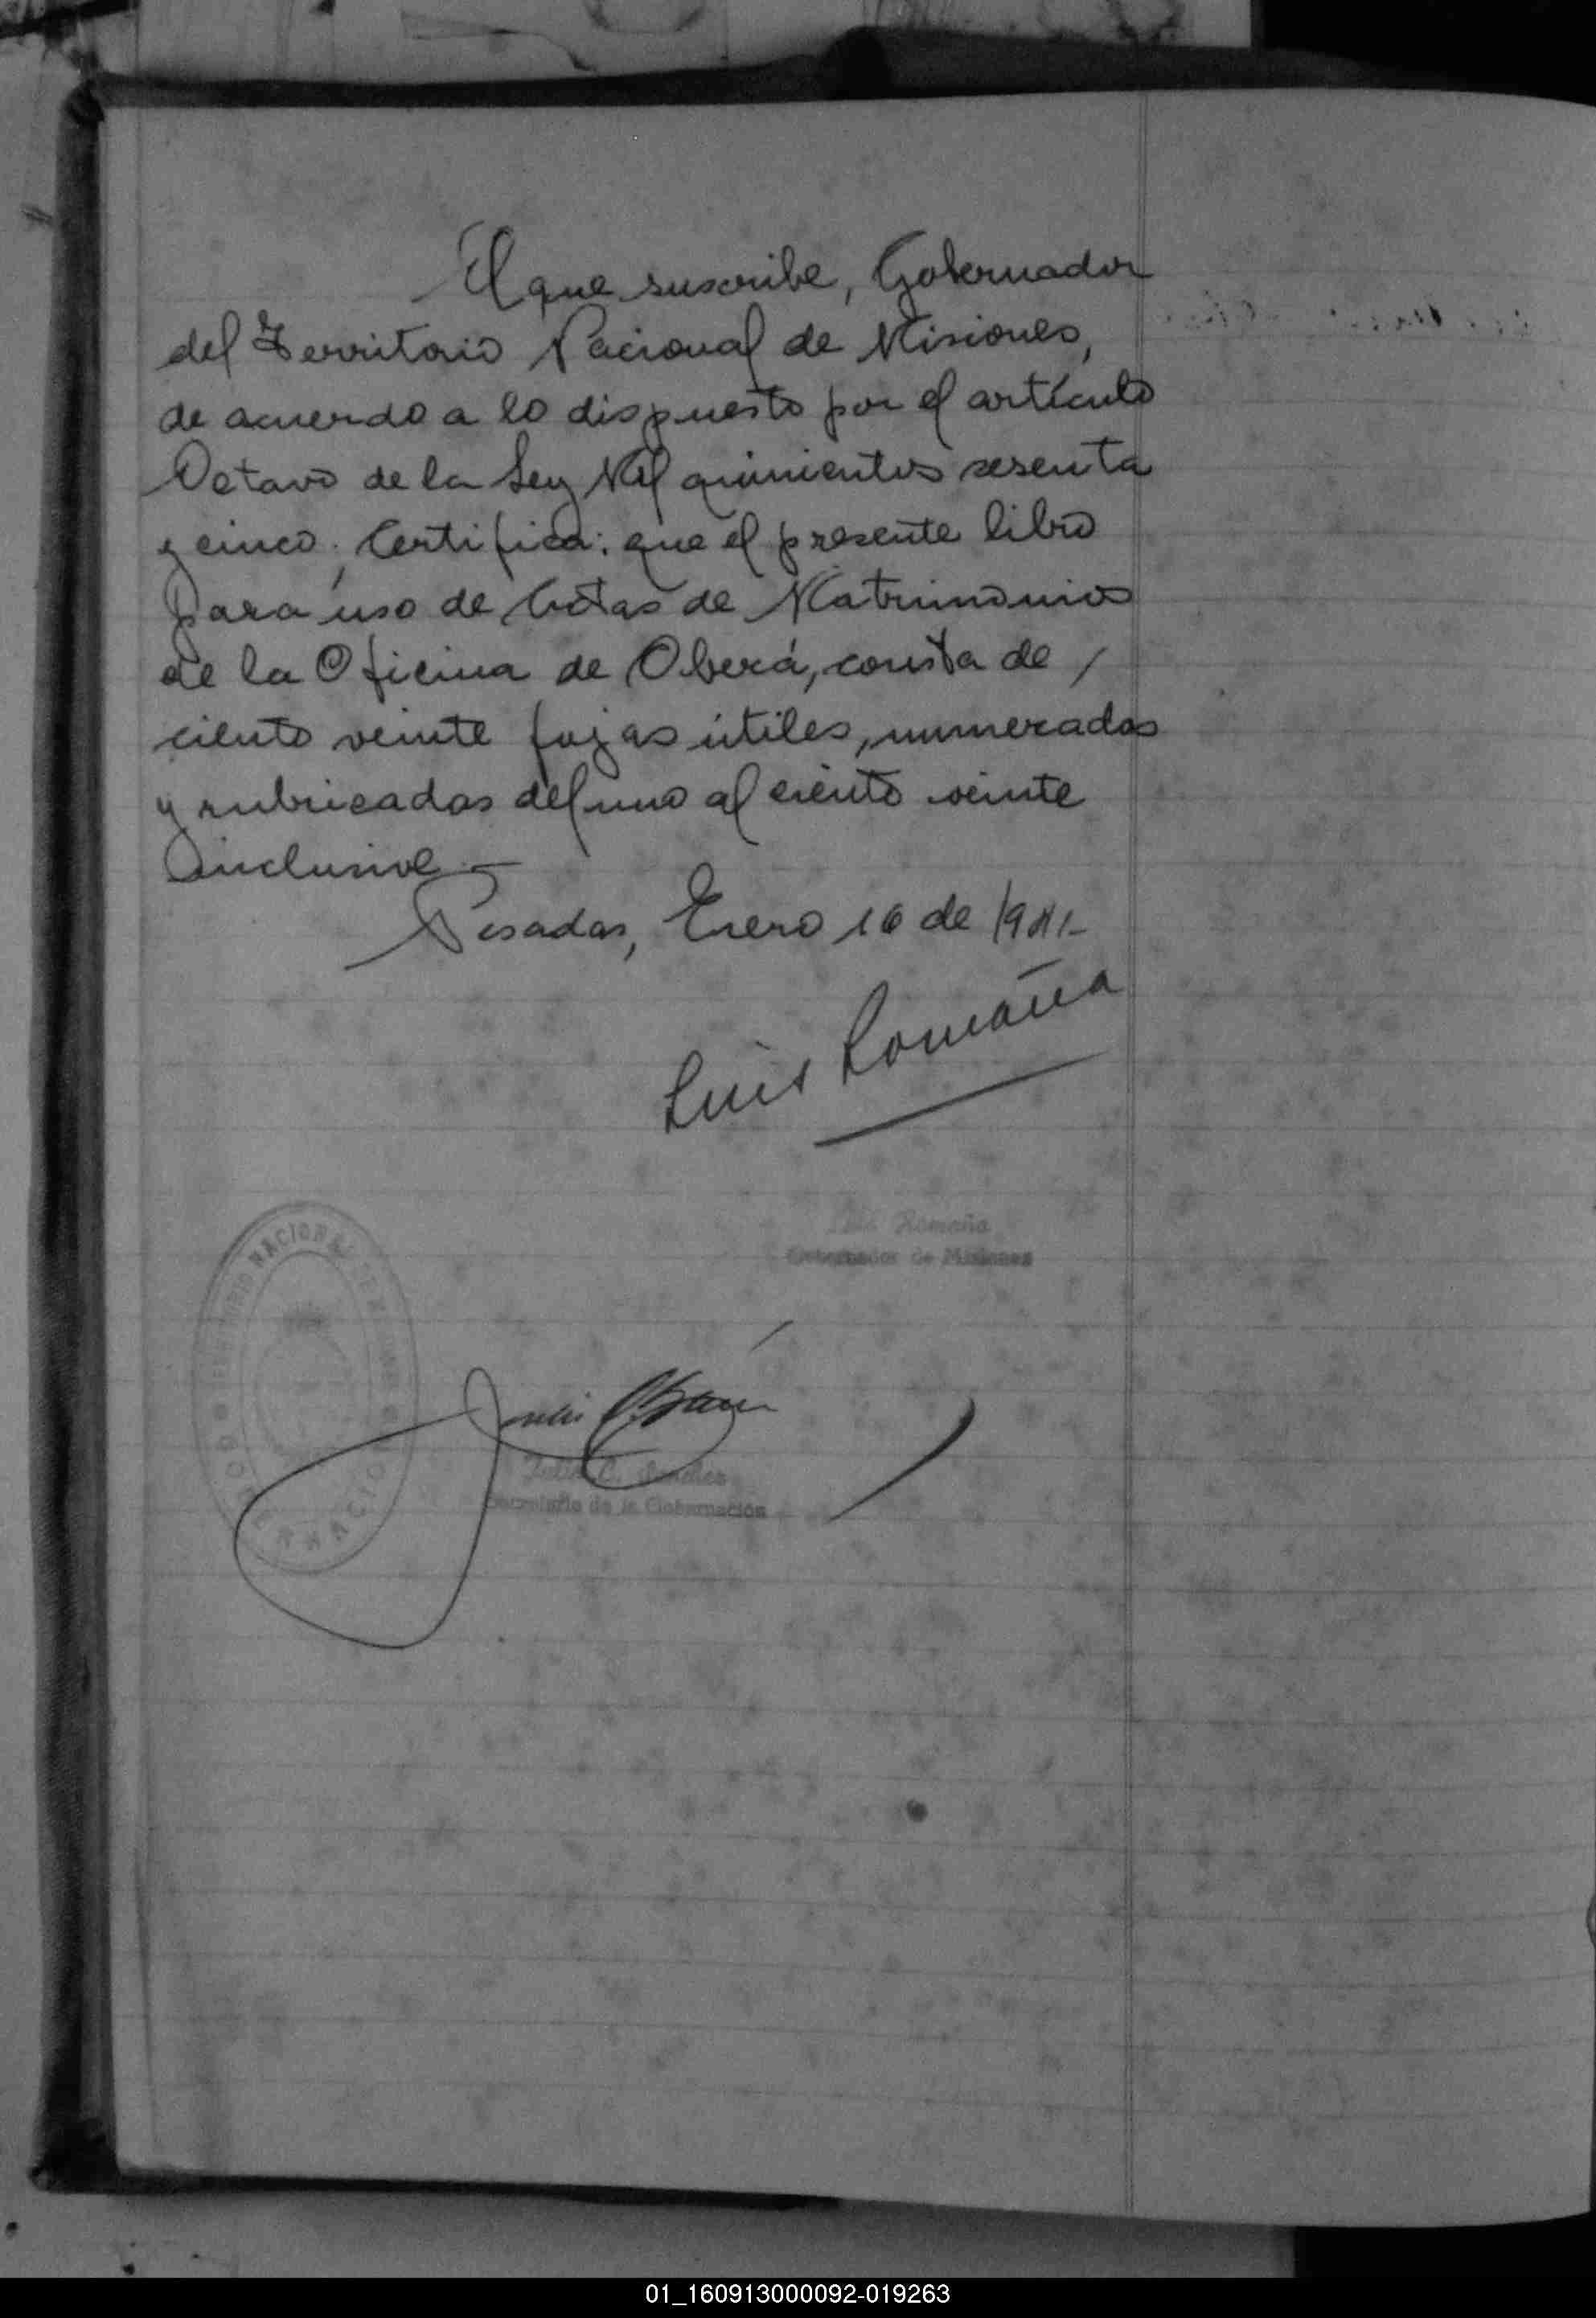 El que suscribe, Gobernador
del Territorio Nacional de Misiones,
de acuerdo a lo dispuesto por el artículo
Octavo de la Ley Mil quinientos sesenta
y cinco, Certifica: que el presente libro
para uso de Actas de Matrimonios
de la Oficina de Oberá, consta de /
ciento veinte fojas útiles, numeradas
y rubricadas del uno al ciento veinte
inclusive.—
Posadas, Enero 16 de 1941-
Luis Romaña
Luis Romaña
Gobernador de Misiones
NACIONAL
Julio C.
Julio C.
Secretario de la Gobernación
01_160913000092-019263